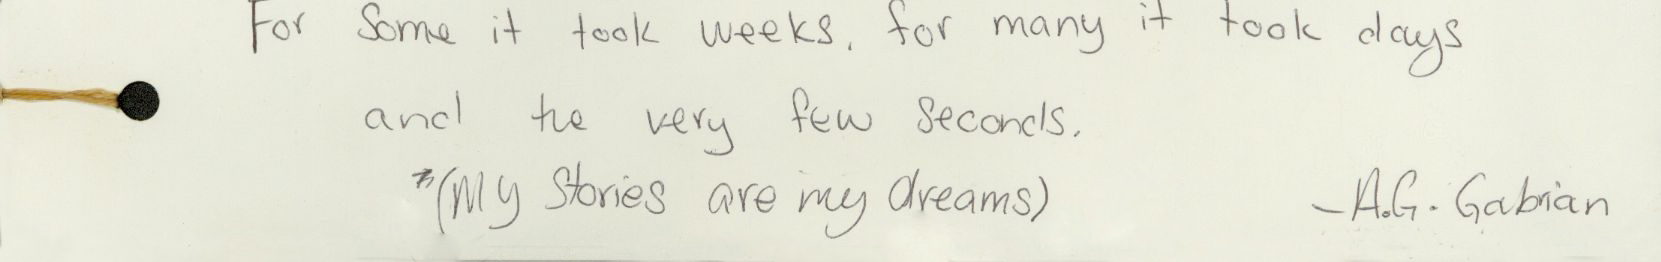 For Some it took weeks, for many it took days
and the very few Seconds.
*(My Stories are my dreams)
-A.G. Gabrian